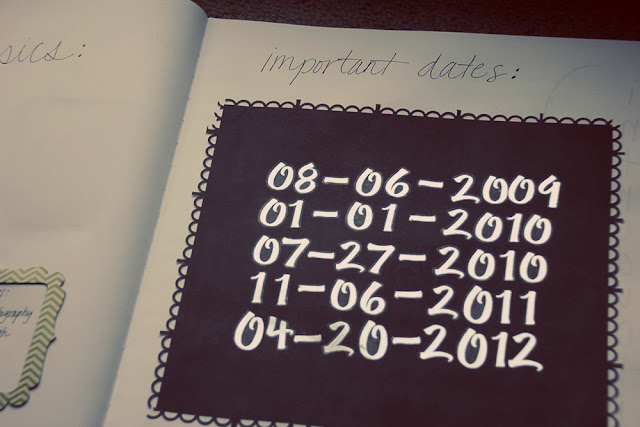 sics:
important dates:
08-06-2009
01-01-2010
07-27-2010
11-06-2011
04-20-2012